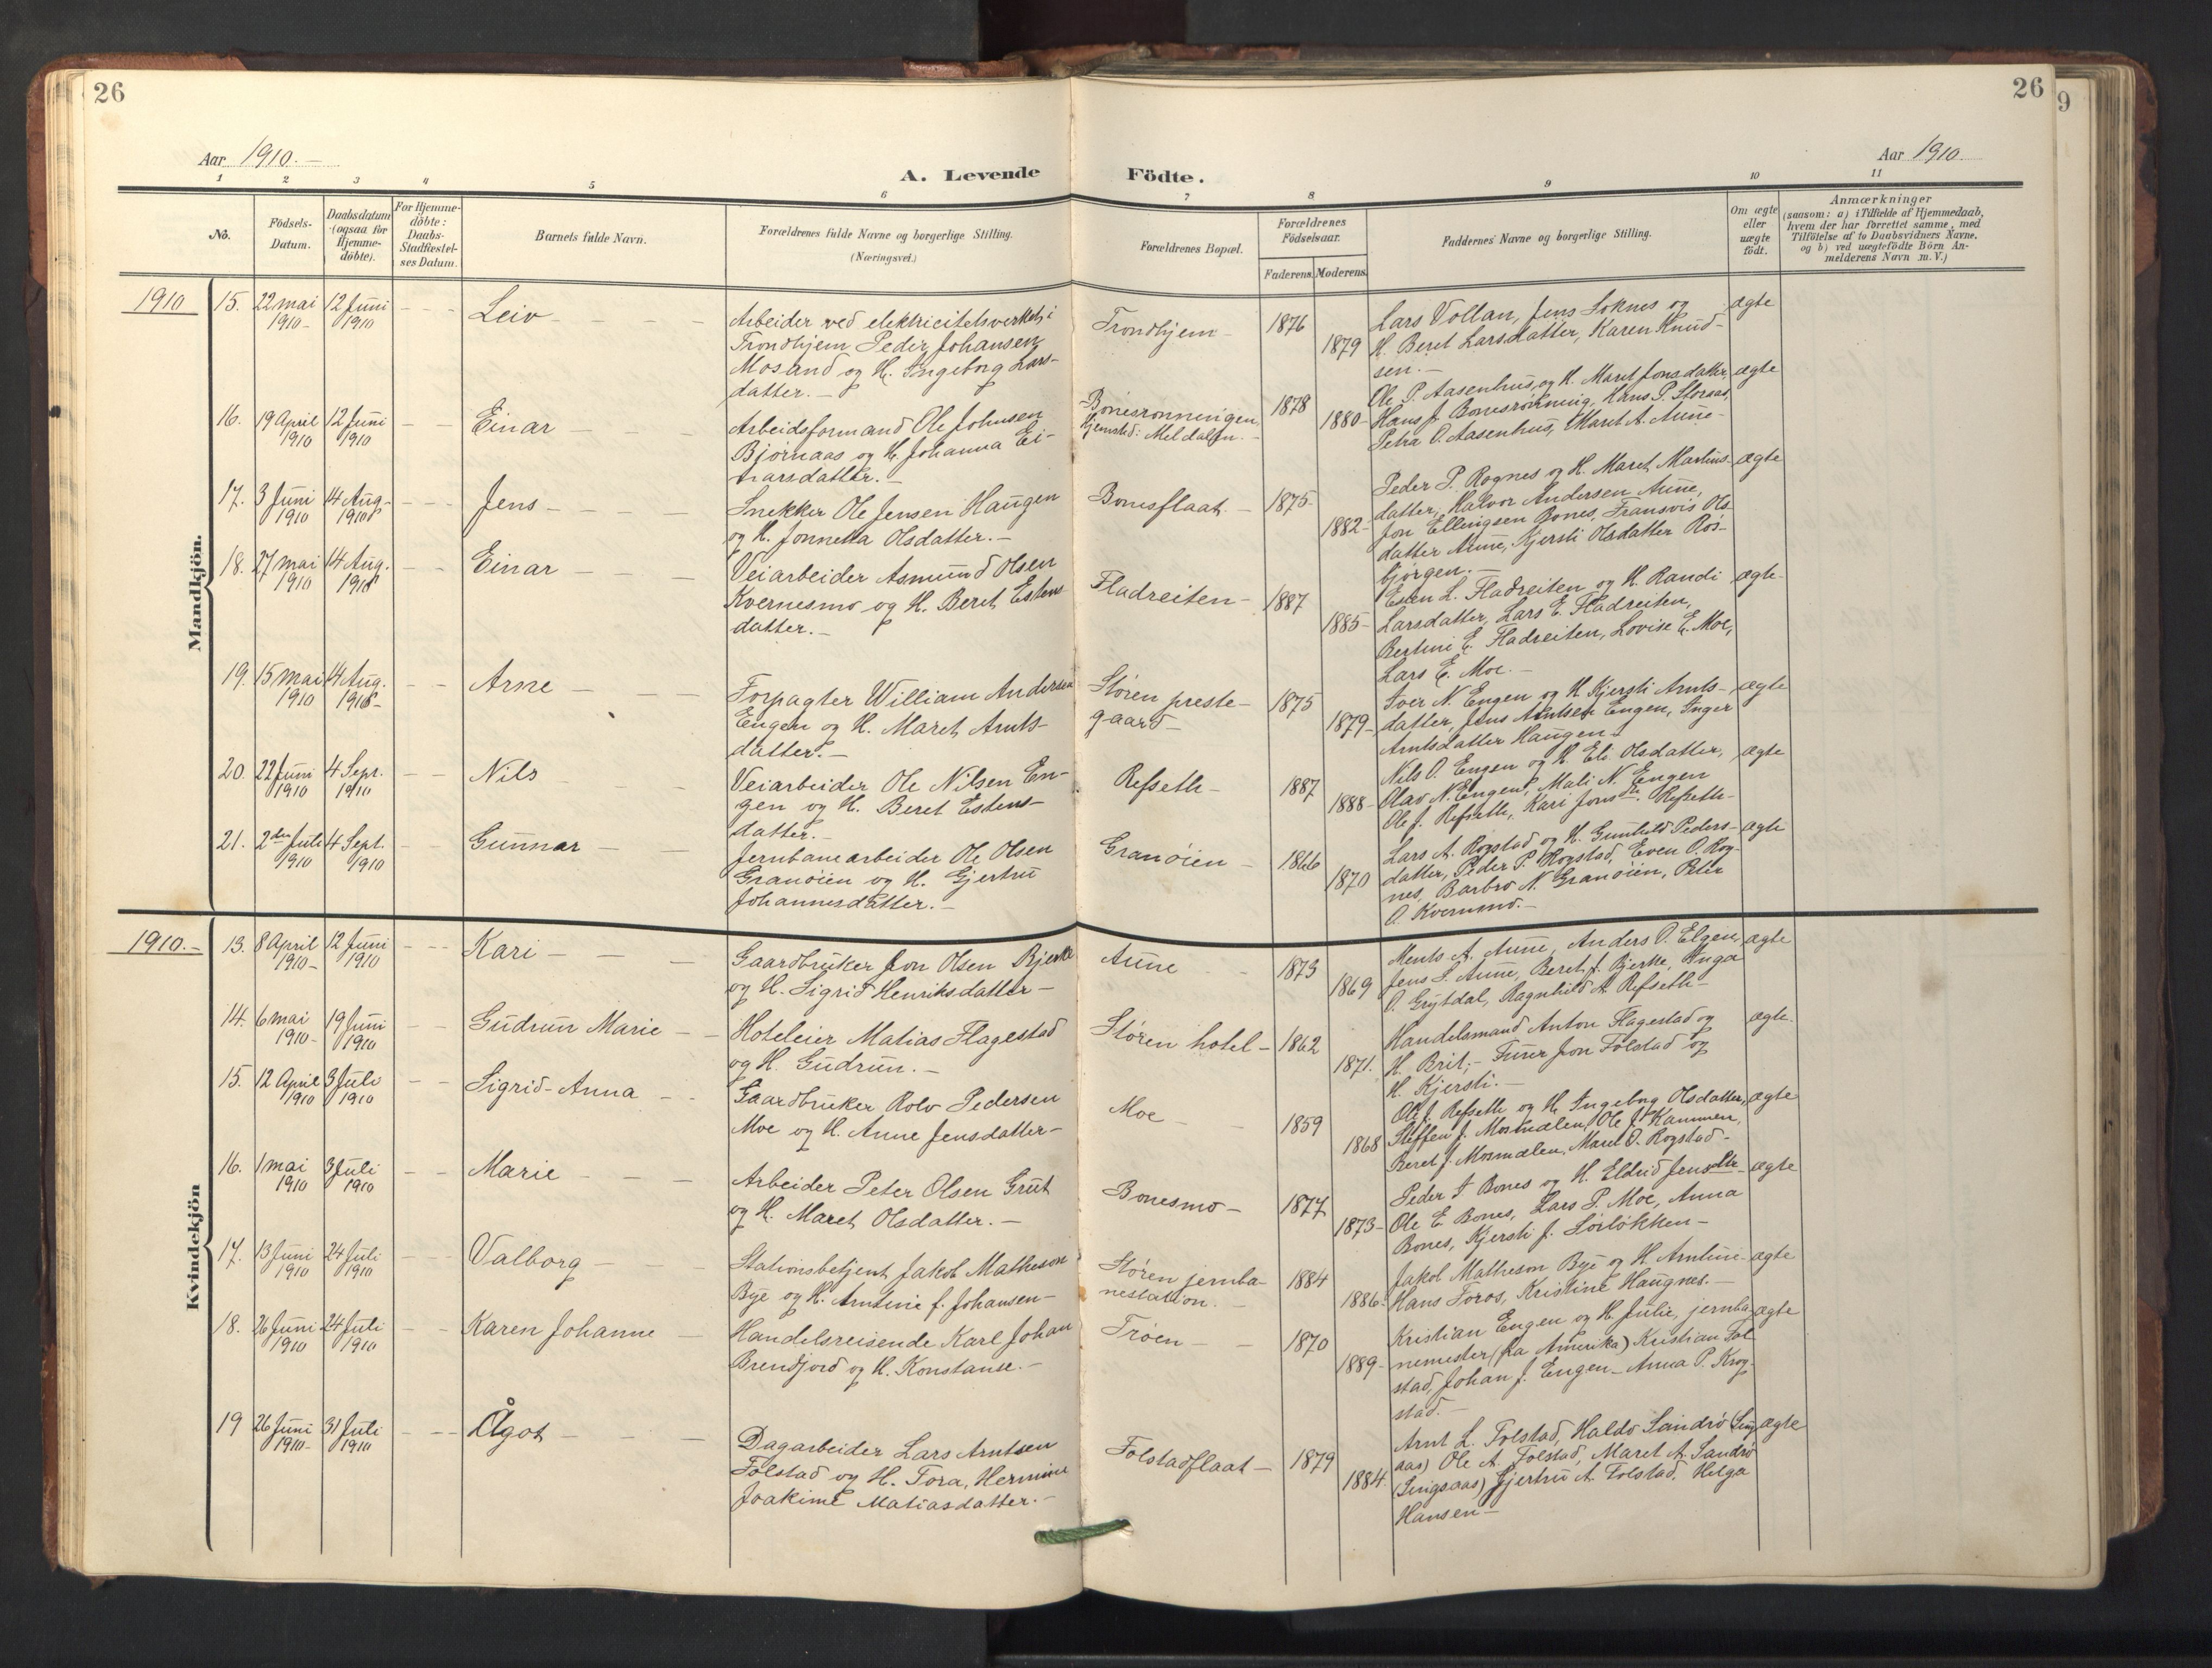 26
26
9
Aar 1910. —
A. Levende
Födte.
Aar 1910.
1 2 3 4 5 6 7 8 9 10 11
No.
Födsels-
Datum.
Daabsdatum
(ogsaa for
Hjemme-
döbte).
For Hjemme-
döbte:
Daabs-
Stadfæstel-
ses Datum.
Barnets fulde Navn.
Forældrenes fulde Navne og borgerlige Stilling.
(Næringsvei.)
Forældrenes Bopæl.
Forældrenes
Födselsaar.
Faderens.
Moderens.
Faddernes Navne og borgerlige Stilling.
Om ægte
eller
uægte
födt.
Anmærkninger
(saasom: a) i Tilfælde af Hjemmedaab,
hvem der har forrettet samme, med
Tilföielse af to Daabsvidners Navne.
og b) ved uægtefödte Börn An-
melderens Navn m. V.)
Mandkjön.
1910
15. 22 mai 1910 - 12 Juni 1910 - - - Leiv - - -
Arbeider ved elektricitetsverket i
Trondhjem Peder Johansen
Mosand og H. Ingeborg Lars-
datter. -
Trondhjem - 1876 1879
Lars Vollan, Jens Soknes og
H. Beret Larsdatter, Karen Knud-
sen. -
ægte
16. 19 April 1910 12 Juni 1910 - - Einar - - -
Arbeidsformand Ole Johnsen
Bjørnaas og H. Johanna Ei-
narsdatter. -
Bonesrønningen,
Hjemsted: Meldalen. -
1878 1880 -
Ole P. Aasenhus, og H. Maret Jonsdatter,
Hans J. Bonesrønning, Hans P. Storaas,
Petra O. Aasenhus, Maret A. Aune -
ægte
17. 3 Juni 1910 14 Aug. 1910 - - - Jens - - - -
Snekker Ole Jensen Haugen
og H. Jonnetta Olsdatter. -
Bonesflaat. - 1875 - 1882 -
Peder P. Rognes og H. Maret Martins-
datter, Halvor Andersen Aune,
Jon Ellingsen Bones, Fransvis Ols-
datter Aune, Kjersti Olsdatter Ros-
bjørgen. -
ægte
18. 27 mai 1910 14 Aug. 1910 - - - Einar - - -
Veiarbeider Asmund Olsen
Kvernesmo og H. Beret Estens-
datter. -
Fladreiten - 1887 1885 -
Esten L. Fladreiten og H. Randi
Larsdatter, Lars E. Fladreiten,
Bertine E. Fladreiten, Lovise E. Moe,
Lars E. Moe. -
ægte -
19. 15 mai 1910 14 Aug. 1910 - - - Arne - - -
Forpagter William Andersen
Engen og H. Maret Arnts-
datter. -
Støren preste-
gaard -
1875 1879 -
Iver N. Engen og H. Kjersti Arnts-
datter, Jens Arntsen Engen, Inger
Arntsdatter Haugen -
ægte
20. 22 Juni 1910 4 Sept. 1910 - - Nils - -
Veiarbeider Ole Nilsen En-
gen og H. Beret Estens-
datter. -
Refseth - 1887 1888 -
Nils O. Engen og H. Eli Olsdatter,
Olav N. Engen, Mali N. Engen
Ole J. Refseth, Kari Jonsdtr. Refseth -
ægte
21. 2den Juli 1910 4 Sept. 1910 - - Gunnar - -
Jernbanearbeider Ole Olsen
Granøien og H. Gjertru
Johannesdatter. -
Granøien - 1866 1870
Lars A. Rogstad og H. Gunhild Peders-
datter, Peder P. Rogstad, Even O. Rog-
nes, Barbro N. Granøien, Peter
O. Kvernmo. -
ægte
Kvindekjön
1910. -
13. 8 April 1910 - 12 Juni 1910 - - - Kari - - -
Gaardbruker Jon Olsen Bjerke
og H. Sigrid Henriksdatter -
Aune - 1873 1869
Ments A. Aune, Anders O. Elgen,
Jens S. Aune, Beret J. Bjerke, Inga
O. Grytdal, Ragnhild A. Refseth -
ægte
14. 6 mai 1910 - 19 Juni 1910 - - Gudrun Marie - -
Hoteleier Matias Flagestad
og H. Gudrun. -
Støren hotel - 1862 1871.
Handelsmand Anton Flagestad og
H. Brit, - Furer Jon Folstad og
H. Kjersti. -
ægte.
15. 12 April 1910 3 Juli 1910 - - Sigrid-Anna - -
Gaardbruker Rolv Pedersen
Moe og H. Anne Jensdatter -
Moe - - 1859 1868
Ole J. Refseth og H. Ingeborg Olsdatter,
Steffen J. Mosmælen, Ole J. Kammen,
Beret J. Mosmælen, Maret O. Rogstad -
ægte
16. 1 mai 1910 3 Juli 1910 - - Marie - - -
Arbeider Peter Olsen Grut
og H. Maret Olsdatter. -
Bonesmo - 1877 1873 -
Peder I Bones og H. Eldrid Jensdtr
Ole E. Bones, Lars P. Moe, Anna
Bones, Kjersti J. Sørløkken -
ægte
17. 13 Juni 1910 24 Juli 1910 - - Valborg - - -
Stationsbetjent Jakob Matheson
Bye og H. Arntine f. Johansen -
Støren jernba-
nestation. -
1884 1886 -
Jakob Matheson Bye og H. Arntine -
Hans Foros, Kristine Haugnes. -
ægte
18. 26 Juni 1910 24 Juli 1910 - - Karen Johanne -
Handelsreisende Karl Johan
Brendjord og H. Konstanse. -
Trøen - - 1870 1889 -
Kristian Engen og H. Julie, jernba-
nemester (fra Amerika) Kristian Fol
stad, Johan J. Engen - Anna P. Krog-
stad. -
ægte
19 26 Juni 1910 - 31 Juli 1910 - - - Ågot - - -
Dagarbeider Lars Arntsen
Folstad og H. Tora, Hermine
Joakime Matiasdatter. -
Folstadflaat - 1879 1884.
Arnt L. Folstad, Haldo Sandrø (Sing-
aas) Ole A. Folstad, Maret A. Sandrø
(Singsaas) Gjertru A. Folstad, Helga
Hansen -
ægte